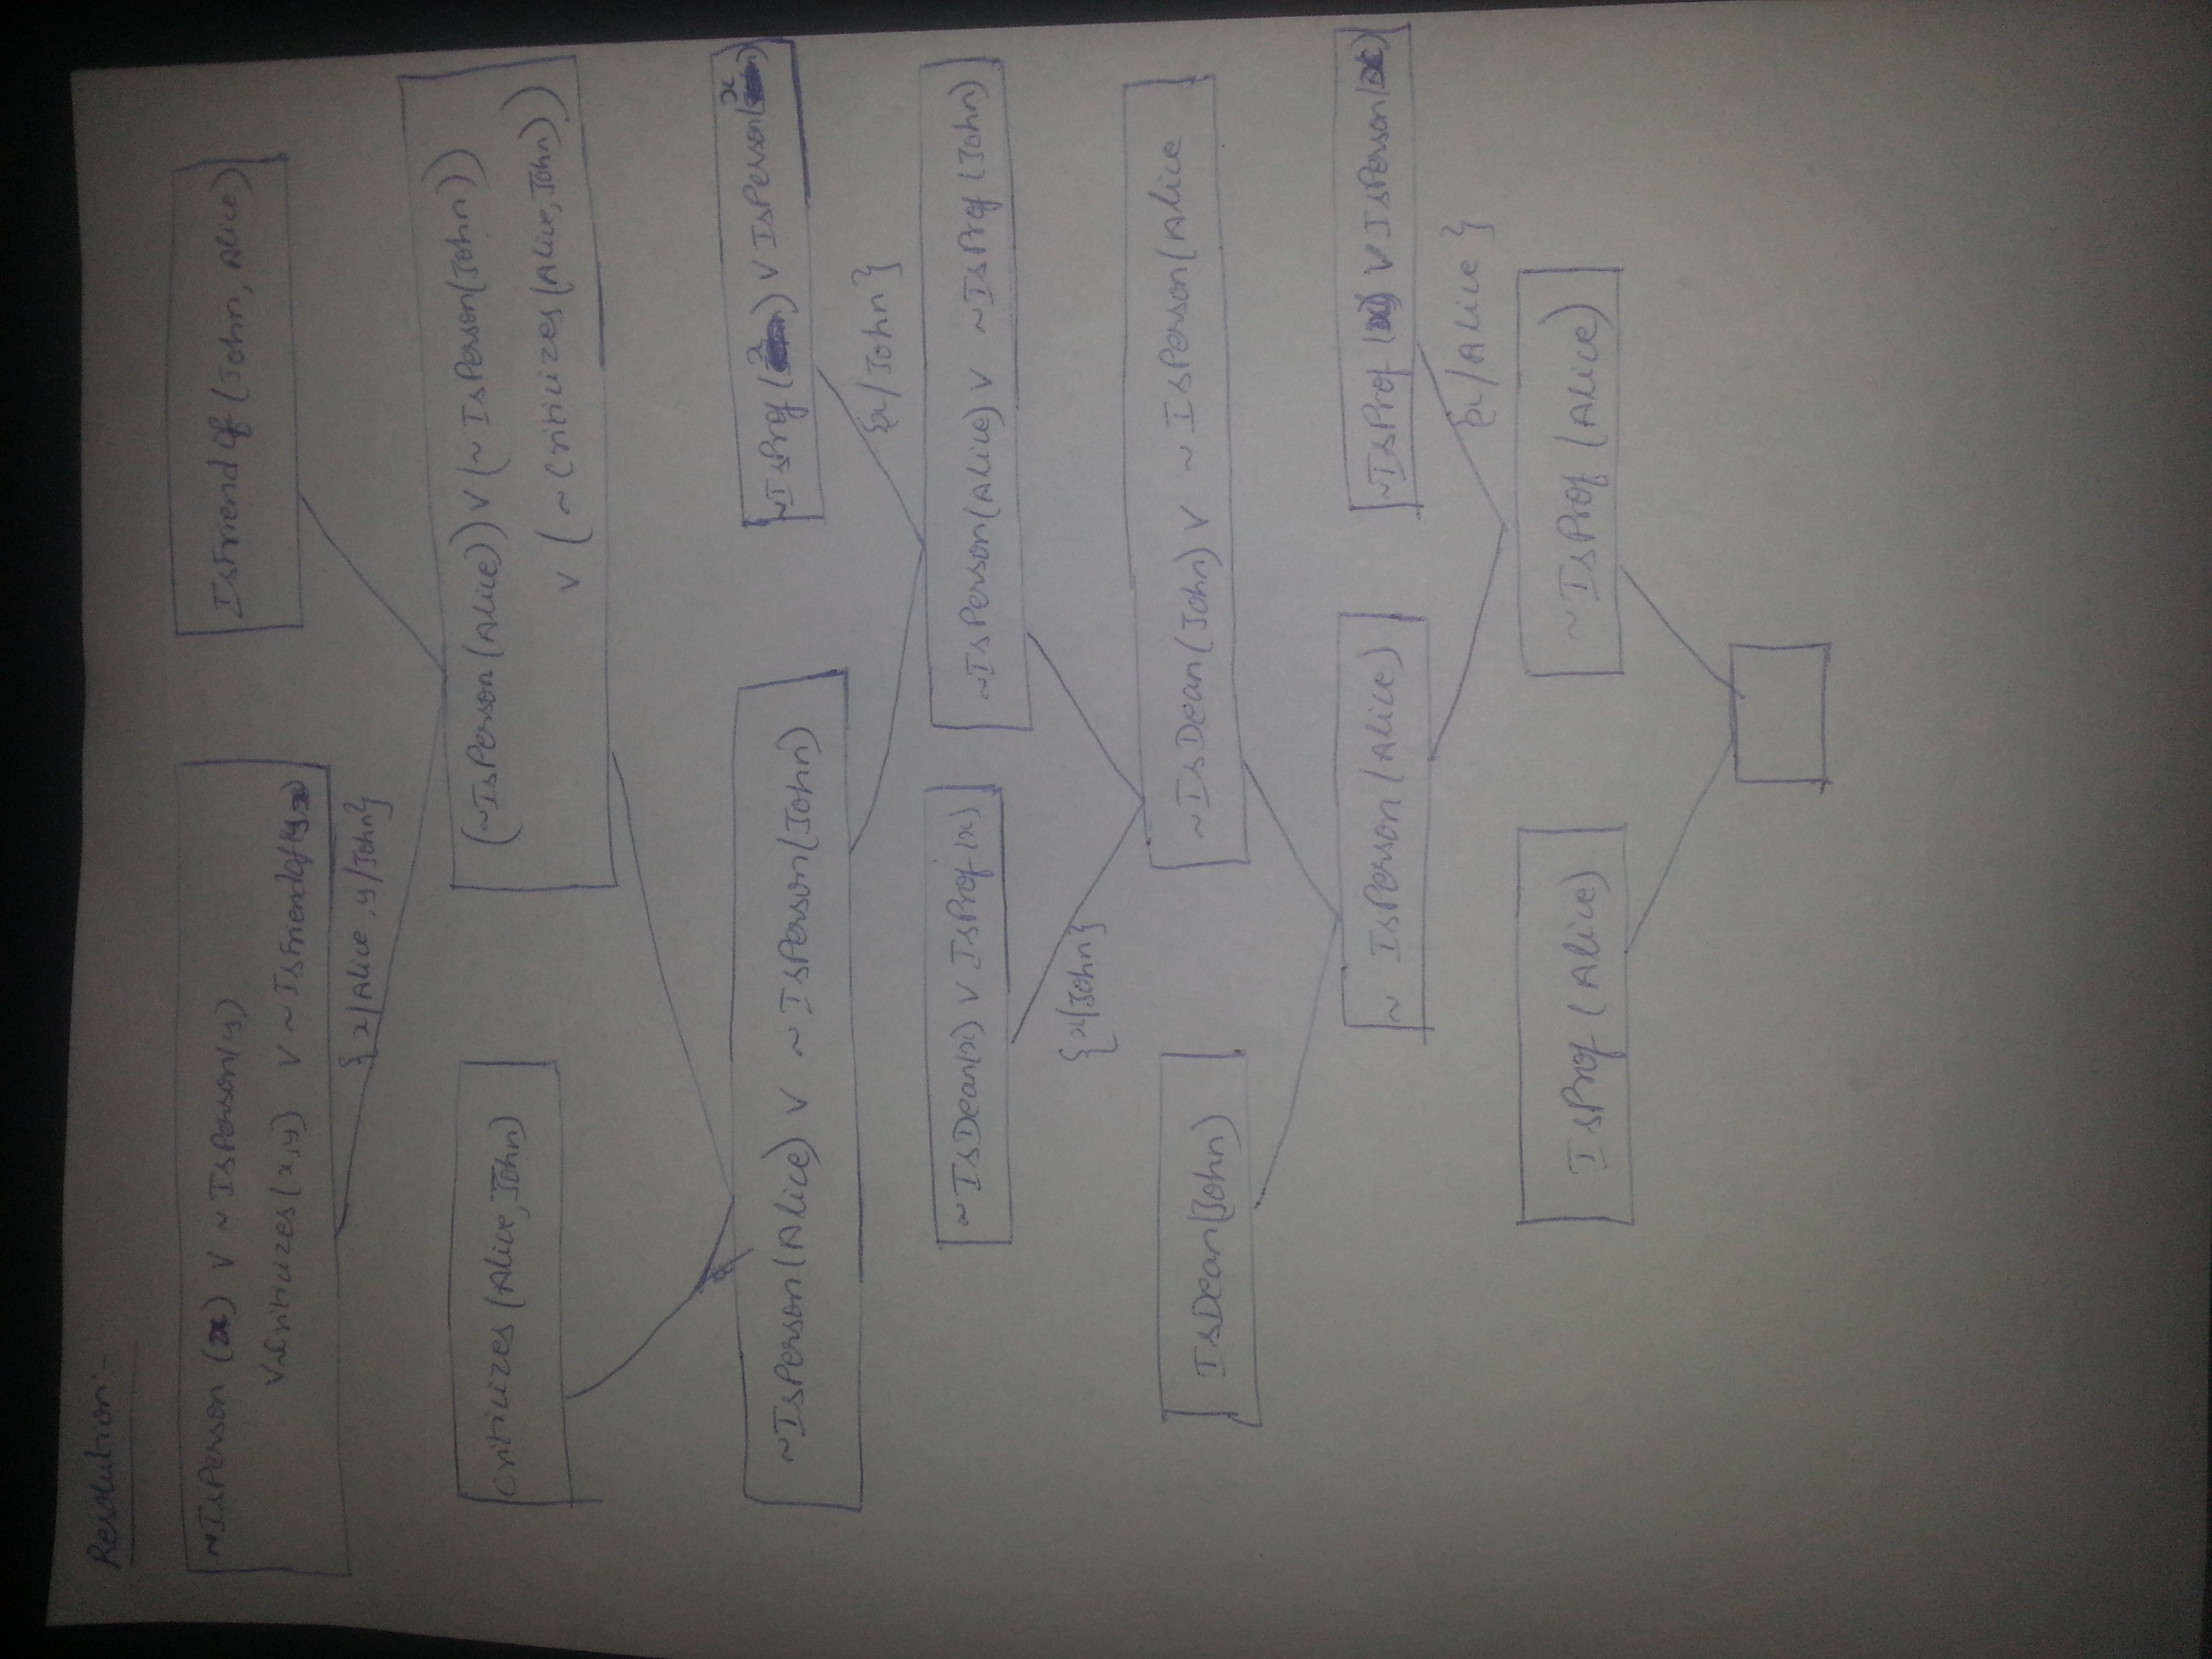 Resolution:-
~IsPerson (x) V ~IsPerson(y)
V~Criticizes(x,y) V ~IsFriendOf(y,x)
IsFriendOf (John, Alice)
{x/Alice, y/John}
(~IsPerson(Alice)) V (~IsPerson(John))
V (~Criticizes(Alice, John))
Criticizes (Alice, John)
~IsPerson(Alice) V ~IsPerson(John)
~IsProf(x) V IsPerson(x)
{x/John}
~IsDean(x) V IsProf(x)
~IsPerson(Alice) V ~IsProf(John)
{x/John}
IsDean(John)
~IsDean(John) V ~IsPerson(Alice
~ IsPerson(Alice)
~IsProf(x) V IsPerson(x)
{x/Alice}
IsProf (Alice)
~IsProf (Alice)